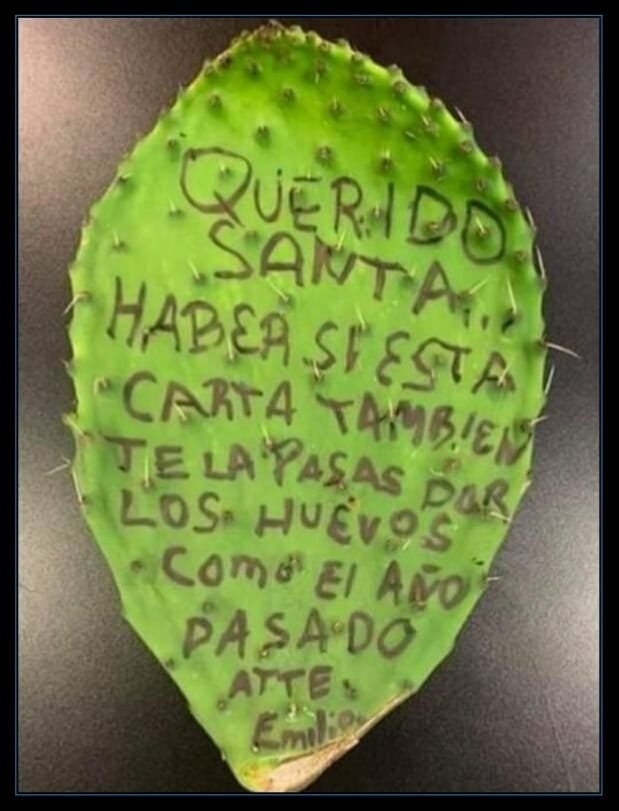 QUERIDO
SANTA...
HABER SI ESTA
CARTA TAMBIEN
TE LA PASAS POR
LOS HUEVOS
Como El AÑO
PASADO
ATTE
Emilio